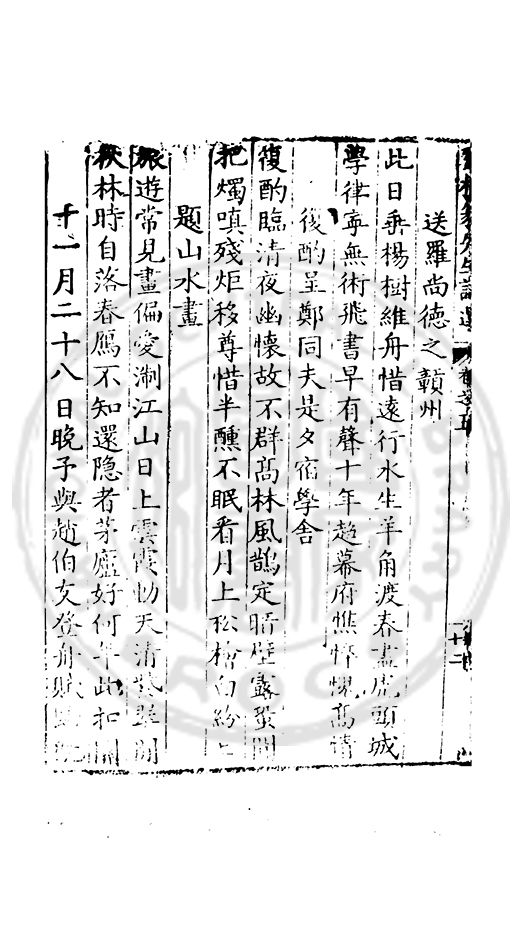 先生詩選
十二
送羅尚德之贑州
此日垂楊樹維舟惜遠行水生羊角渡春盡虎頭城
學律寧無術飛書早有聲十年趍幕府憔悴愧髙情
後酌呈鄭同夫是夕宿學舍
復酌臨清夜幽懷故不群髙林風鵲定暗壁露蛩聞
把燭嗔殘炬移尊惜半醺不眠看月上松檜白紛
題山水畫
旅遊常見畫偏愛淛江山日上雲霞動天清
秋林時自落春鴈不知還隱者茅廬好何年此扣關
十一月二十八日晚予與趙伯友登舟賦